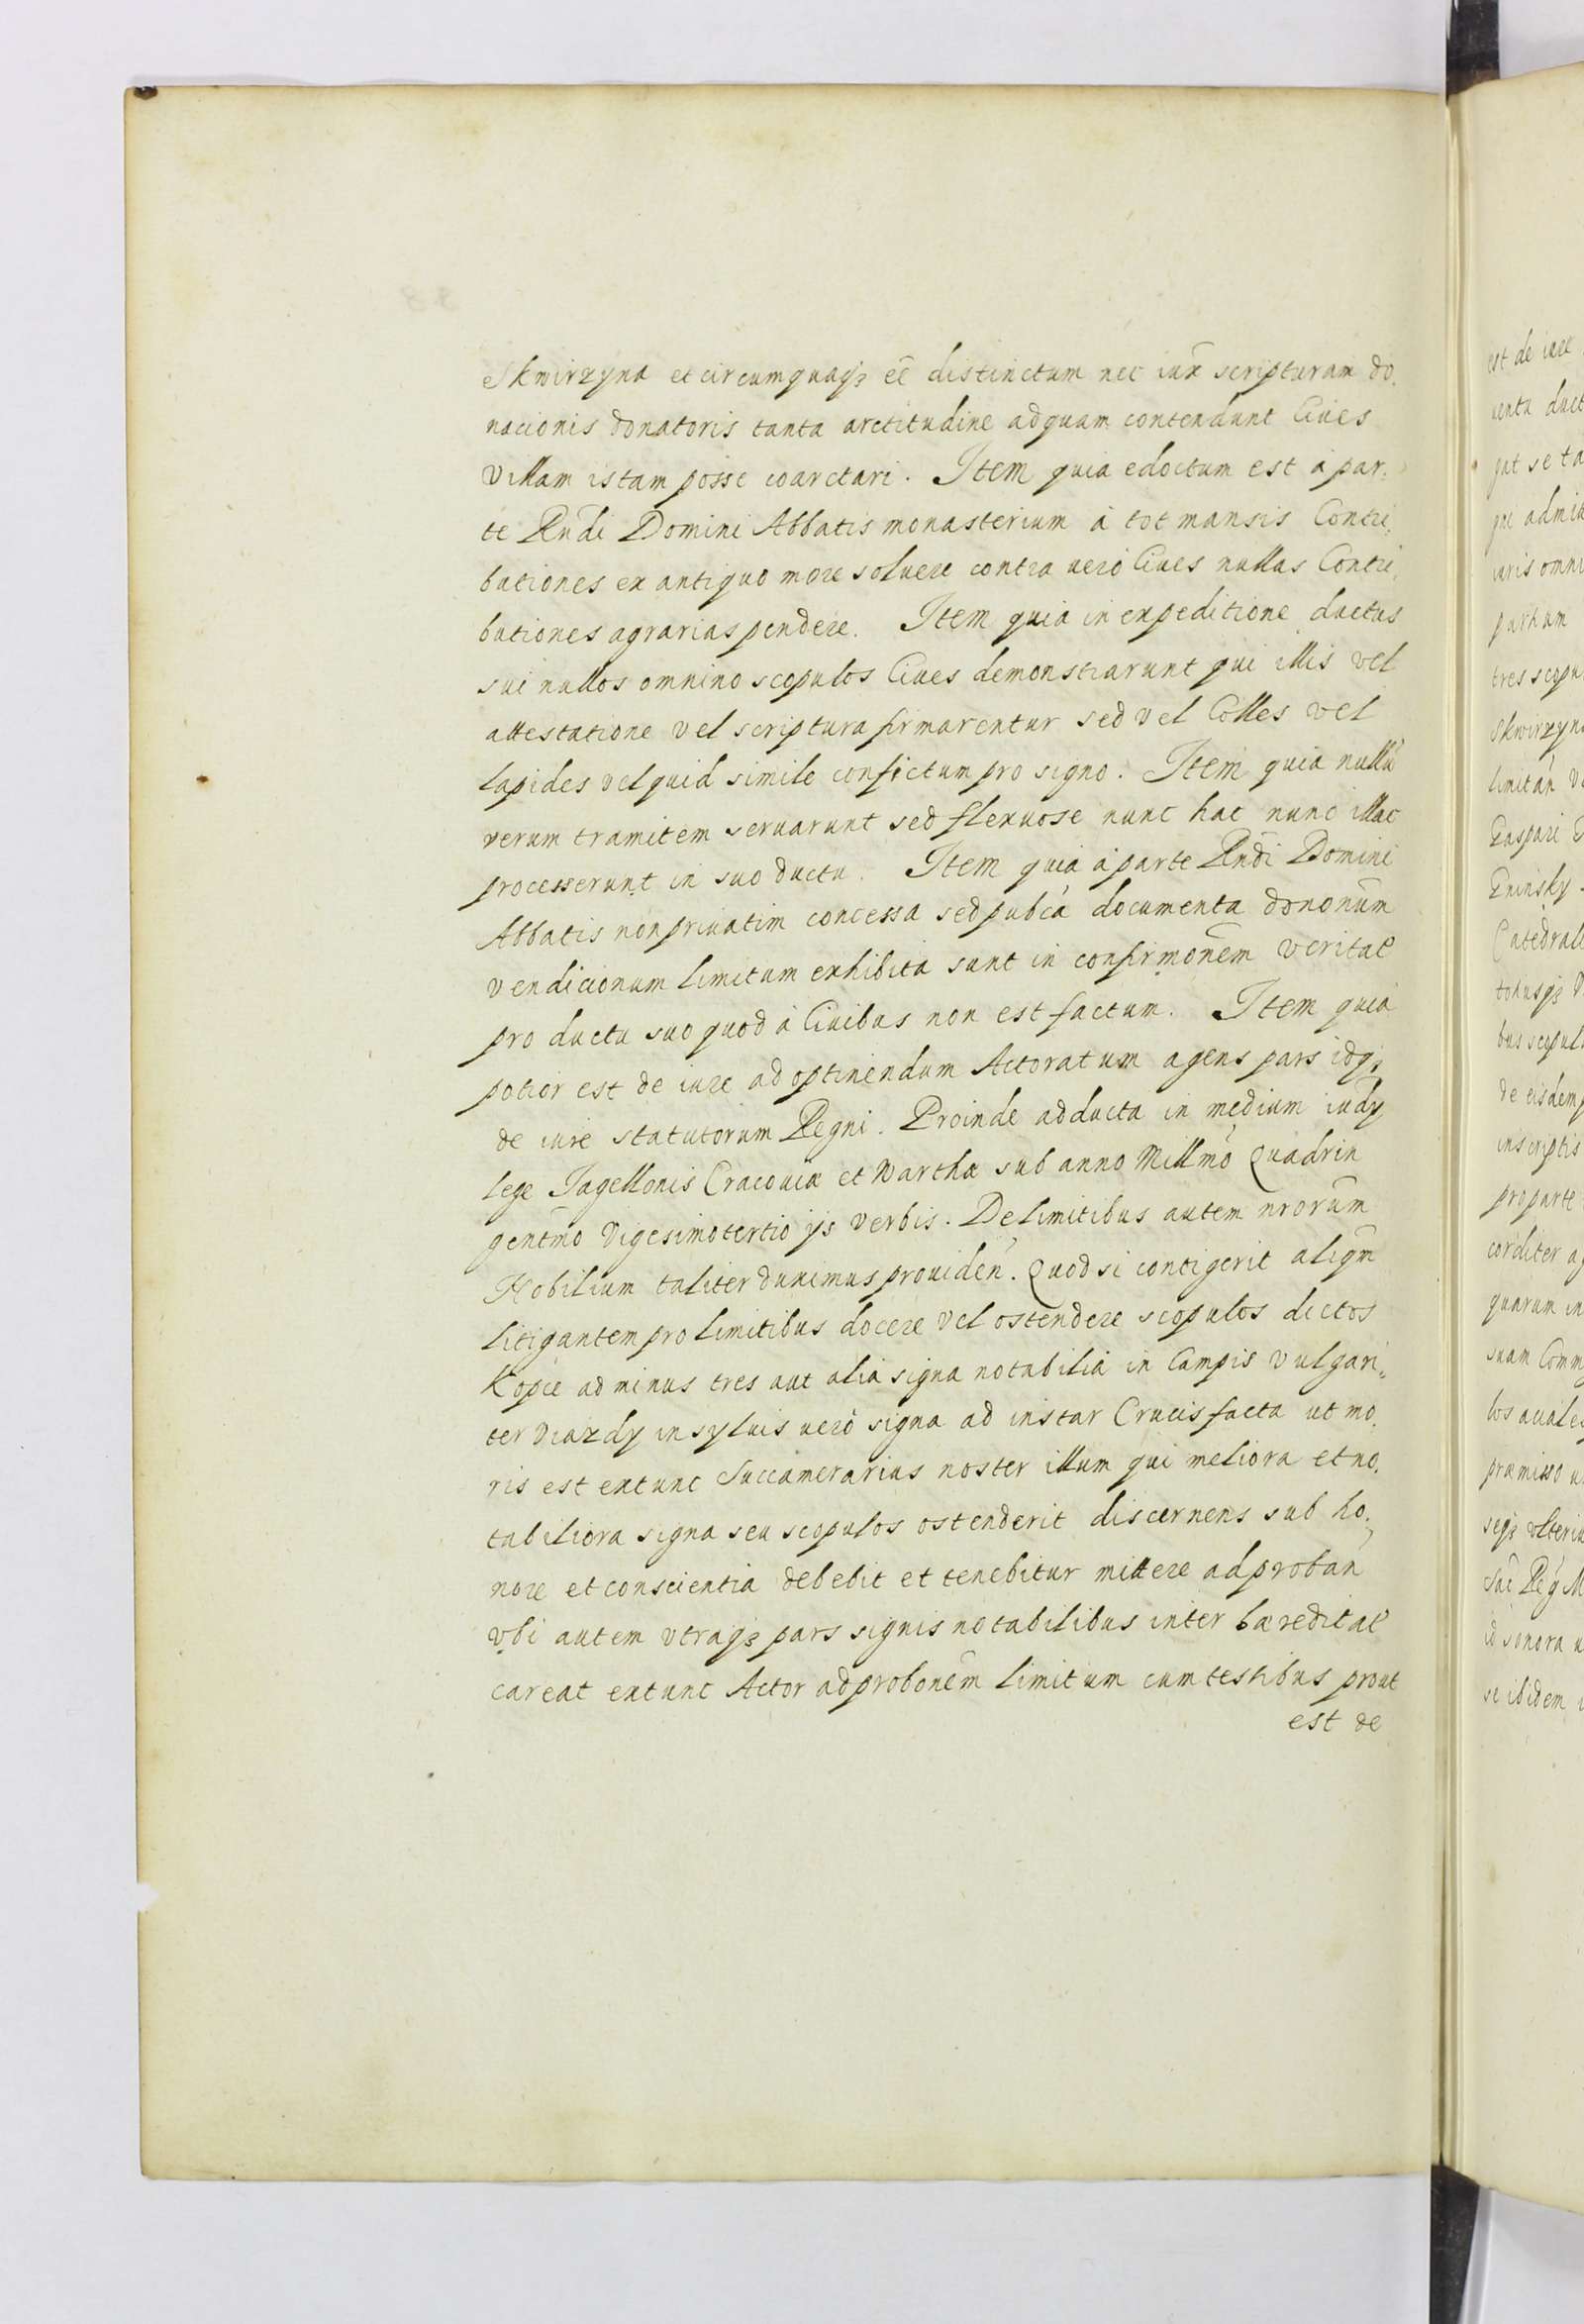 Skwirzyna et circumquaqꝫ eē distinctum nec iux̄ scripturam do,
nacionis donatoris tanta arctitudine ad quam contendunt Ciues
Villam istam posse coarctari. Item quia edoctum est à par,
te Rndi Domini Abbatis monasterium à tot mansis Contri,
butiones ex antiquo more soluere contra uerò Ciues nullas Contri,
butiones agrarias pendere. Item quia in expeditione ductus
sui nullos omnino scopulos Ciues demonstrarunt qui illis vel
attestatione vel scriptura firmarentur sed vel Colles vel
lapides vel quid simile confictum pro signo. Item quia nullū
verum tramitem seruarunt sed flexuose nunc hac nunc illac
processerunt in suo ductu. Item quia à parte Rndi Domini
Abbatis non priuatim concessa sed pubca documenta dononum̄
vendicionum limitum exhibita sunt in confirmonem̄ veritat
pro ductu suo quod à Ciuibus non est factum. Item quia
potior est de iure ad optinendum Actoratum agens pars idqꝫ
de iure statutorum Regni. Proinde adducta in medium iudy
lege Jagellonis Cracouiæ et Warthæ sub anno Millmo Quadrin
gentmo Vigesimotertio ijs verbis. De limitibus autem nrorum̄
Nobilium taliter duximus prouiden̄. Quod si contigerit aliqm̄
litigantem pro limitibus docere vel ostendere scopulos dictos
Kopce ad minus tres aut alia signa notabilia in Campis vulgari,
ter Viazdy in syluis uerò signa ad instar Crucis facta ut mo,
ris est extunc Succamerarius noster illum qui meliora et no,
tabiliora signa seu scopulos ostenderit discernens sub ho,
nore et conscientia debebit et tenebitur mittere ad proban̄
vbi autem vtraqꝫ pars signis notabilibus inter hæreditat
careat extunc Actor ad probonem̄ limitum cum testibus prout
est de